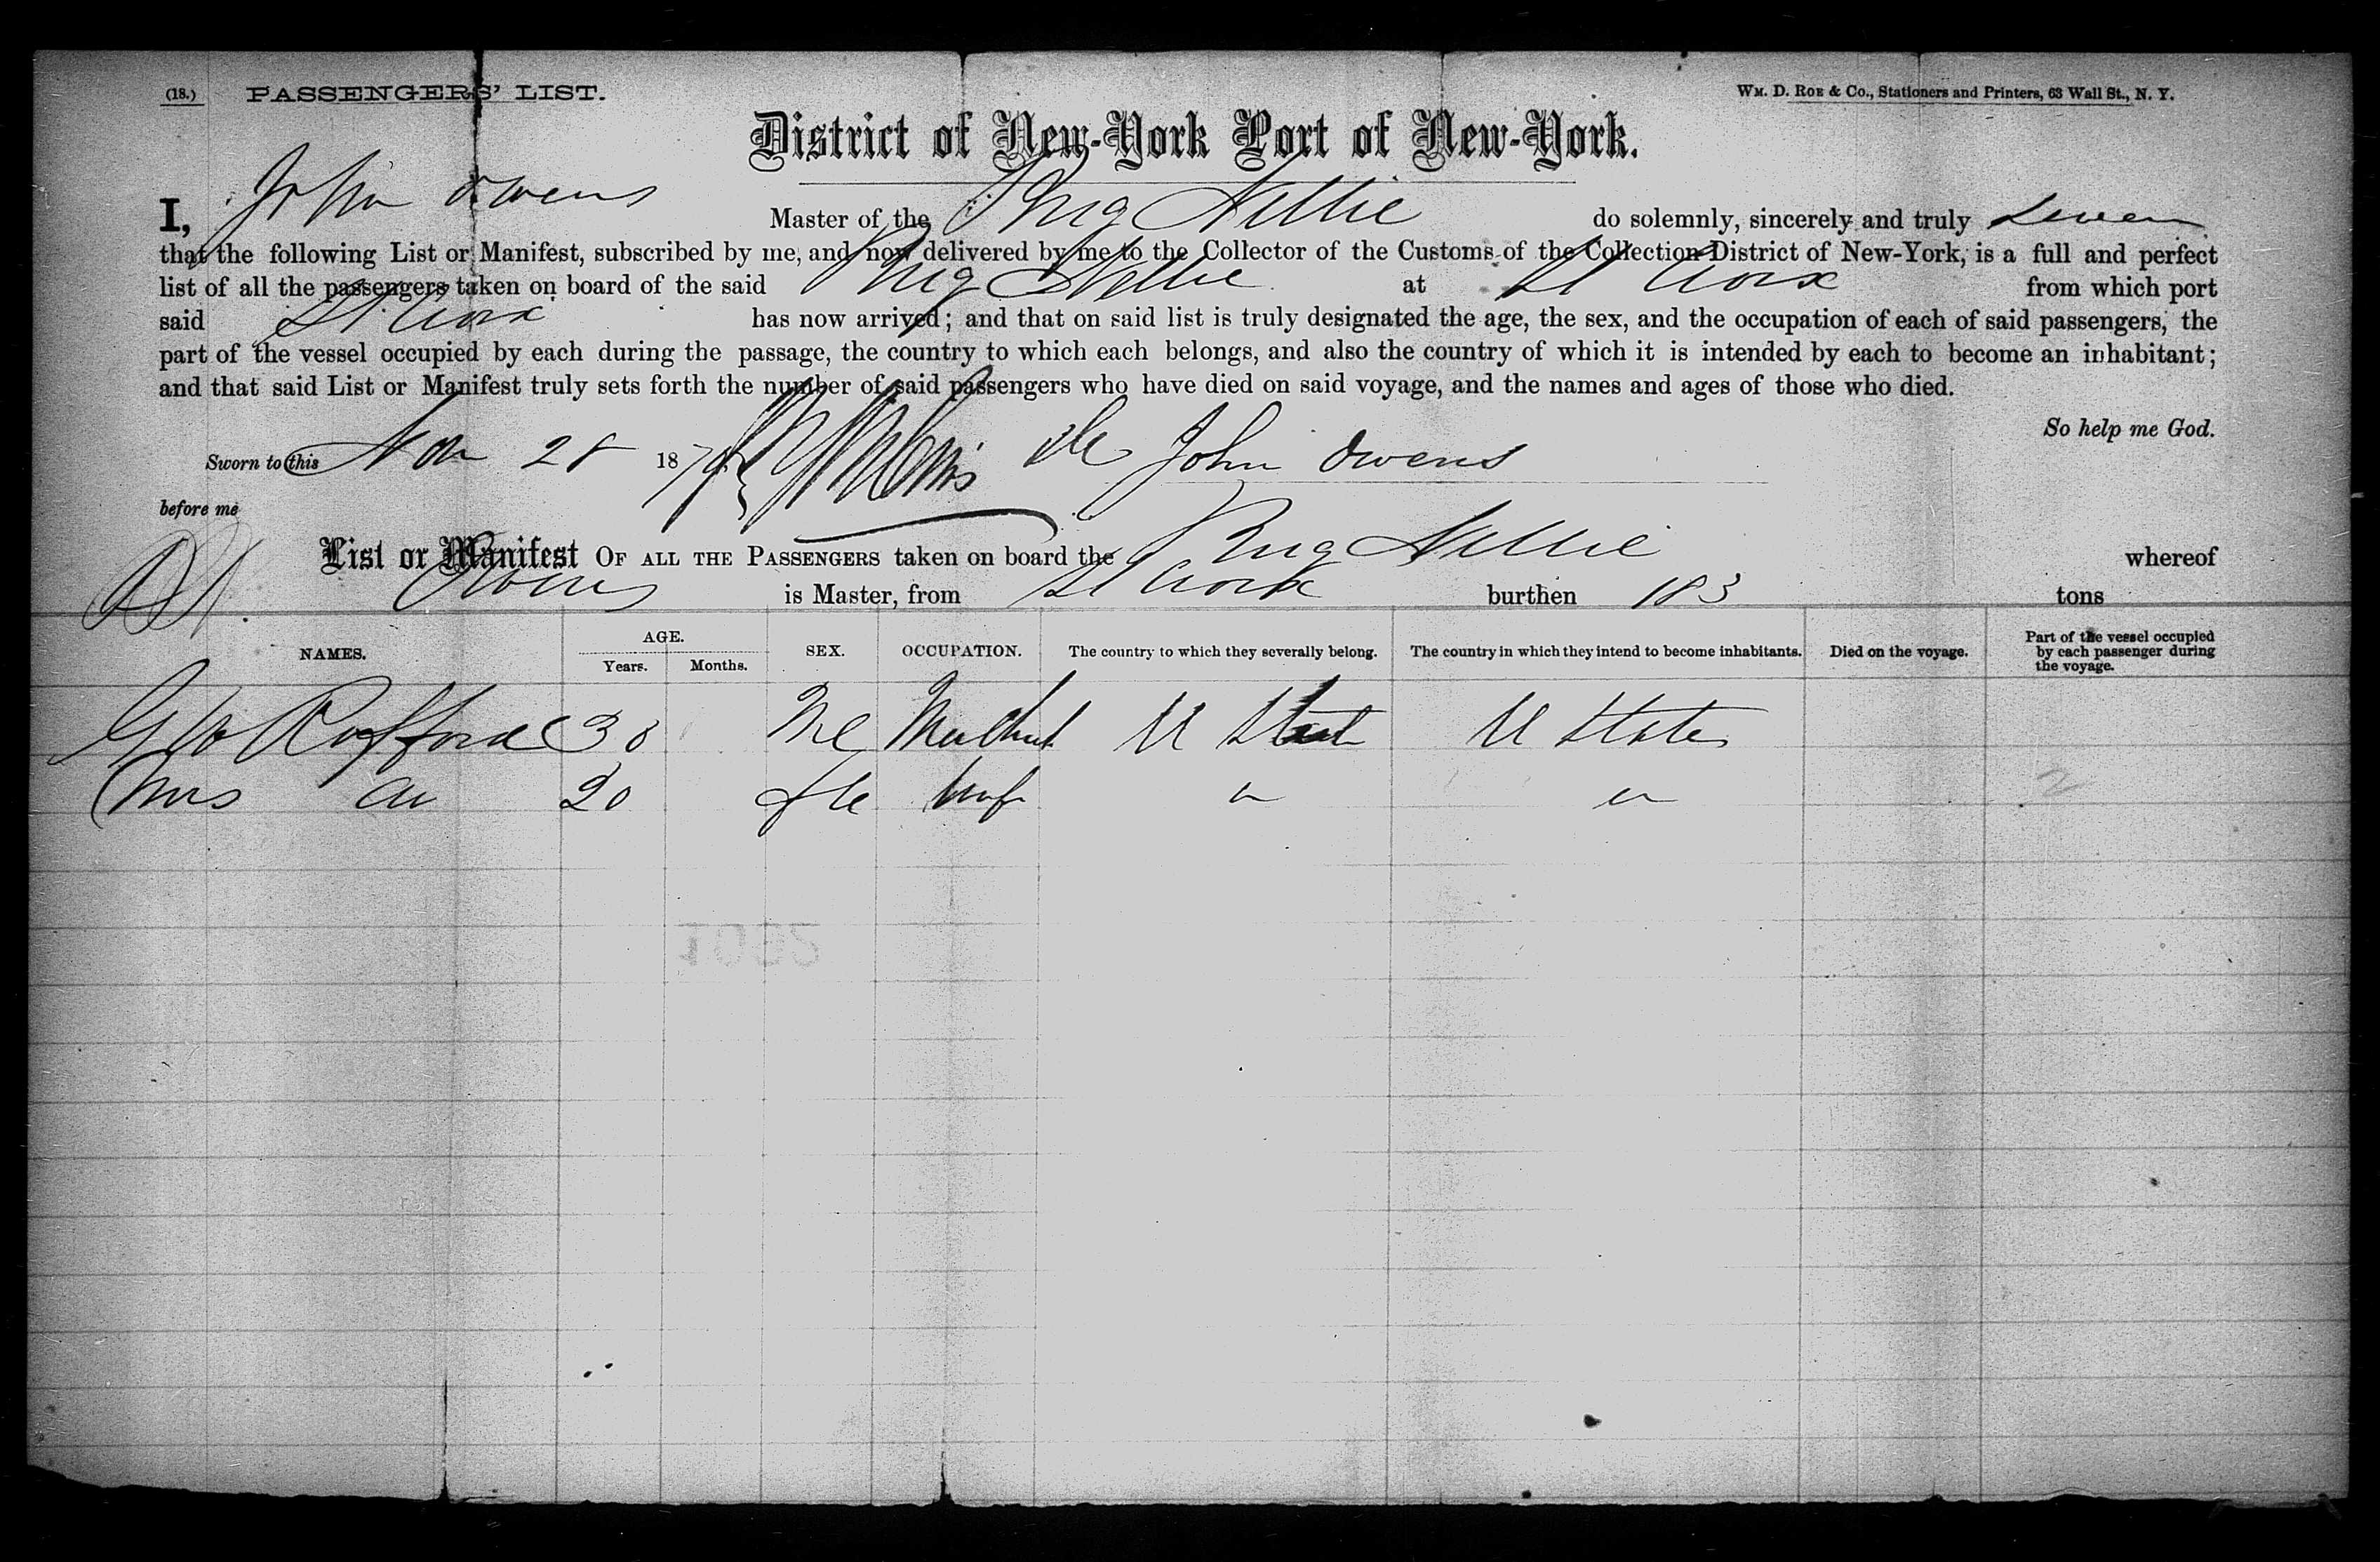 (18.) PASSENGERS' LIST. Wm. D. Roe & Co., Stationers and Printers, 63 Wall St., N. Y.
District of New-York Port of New-York.
I, John Owens Master of the Brig Nellie do solemnly, sincerely and truly swear
that the following List or Manifest, subscribed by me, and now delivered by me to the Collector of the Customs of the Collection District of New-York, is a full and perfect
list of all the passengers taken on board of the said Brig Nellie at St Croix from which port
said St. Croix has now arrived; and that on said list is truly designated the age, the sex, and the occupation of each of said passengers, the
part of the vessel occupied by each during the passage, the country to which each belongs, and also the country of which it is intended by each to become an inhabitant;
and that said List or Manifest truly sets forth the number of said passengers who have died on said voyage, and the names and ages of those who died.
So help me God.
Sworn to this Nov 28 187 John Owens
before me
List or Manifest OF ALL THE PASSENGERS taken on board the Brig Nellie whereof
Owens is Master, from St Croix burthen 183 tons
NAMES. AGE. Years. Months. SEX. OCCUPATION. The country to which they severally belong. The country in which they intend to become inhabitants. Died on the voyage. Part of the vessel occupied by each passenger during the voyage.
Geo 30 Me Merchant U State U States
Mrs 20 fle wife
2
1092